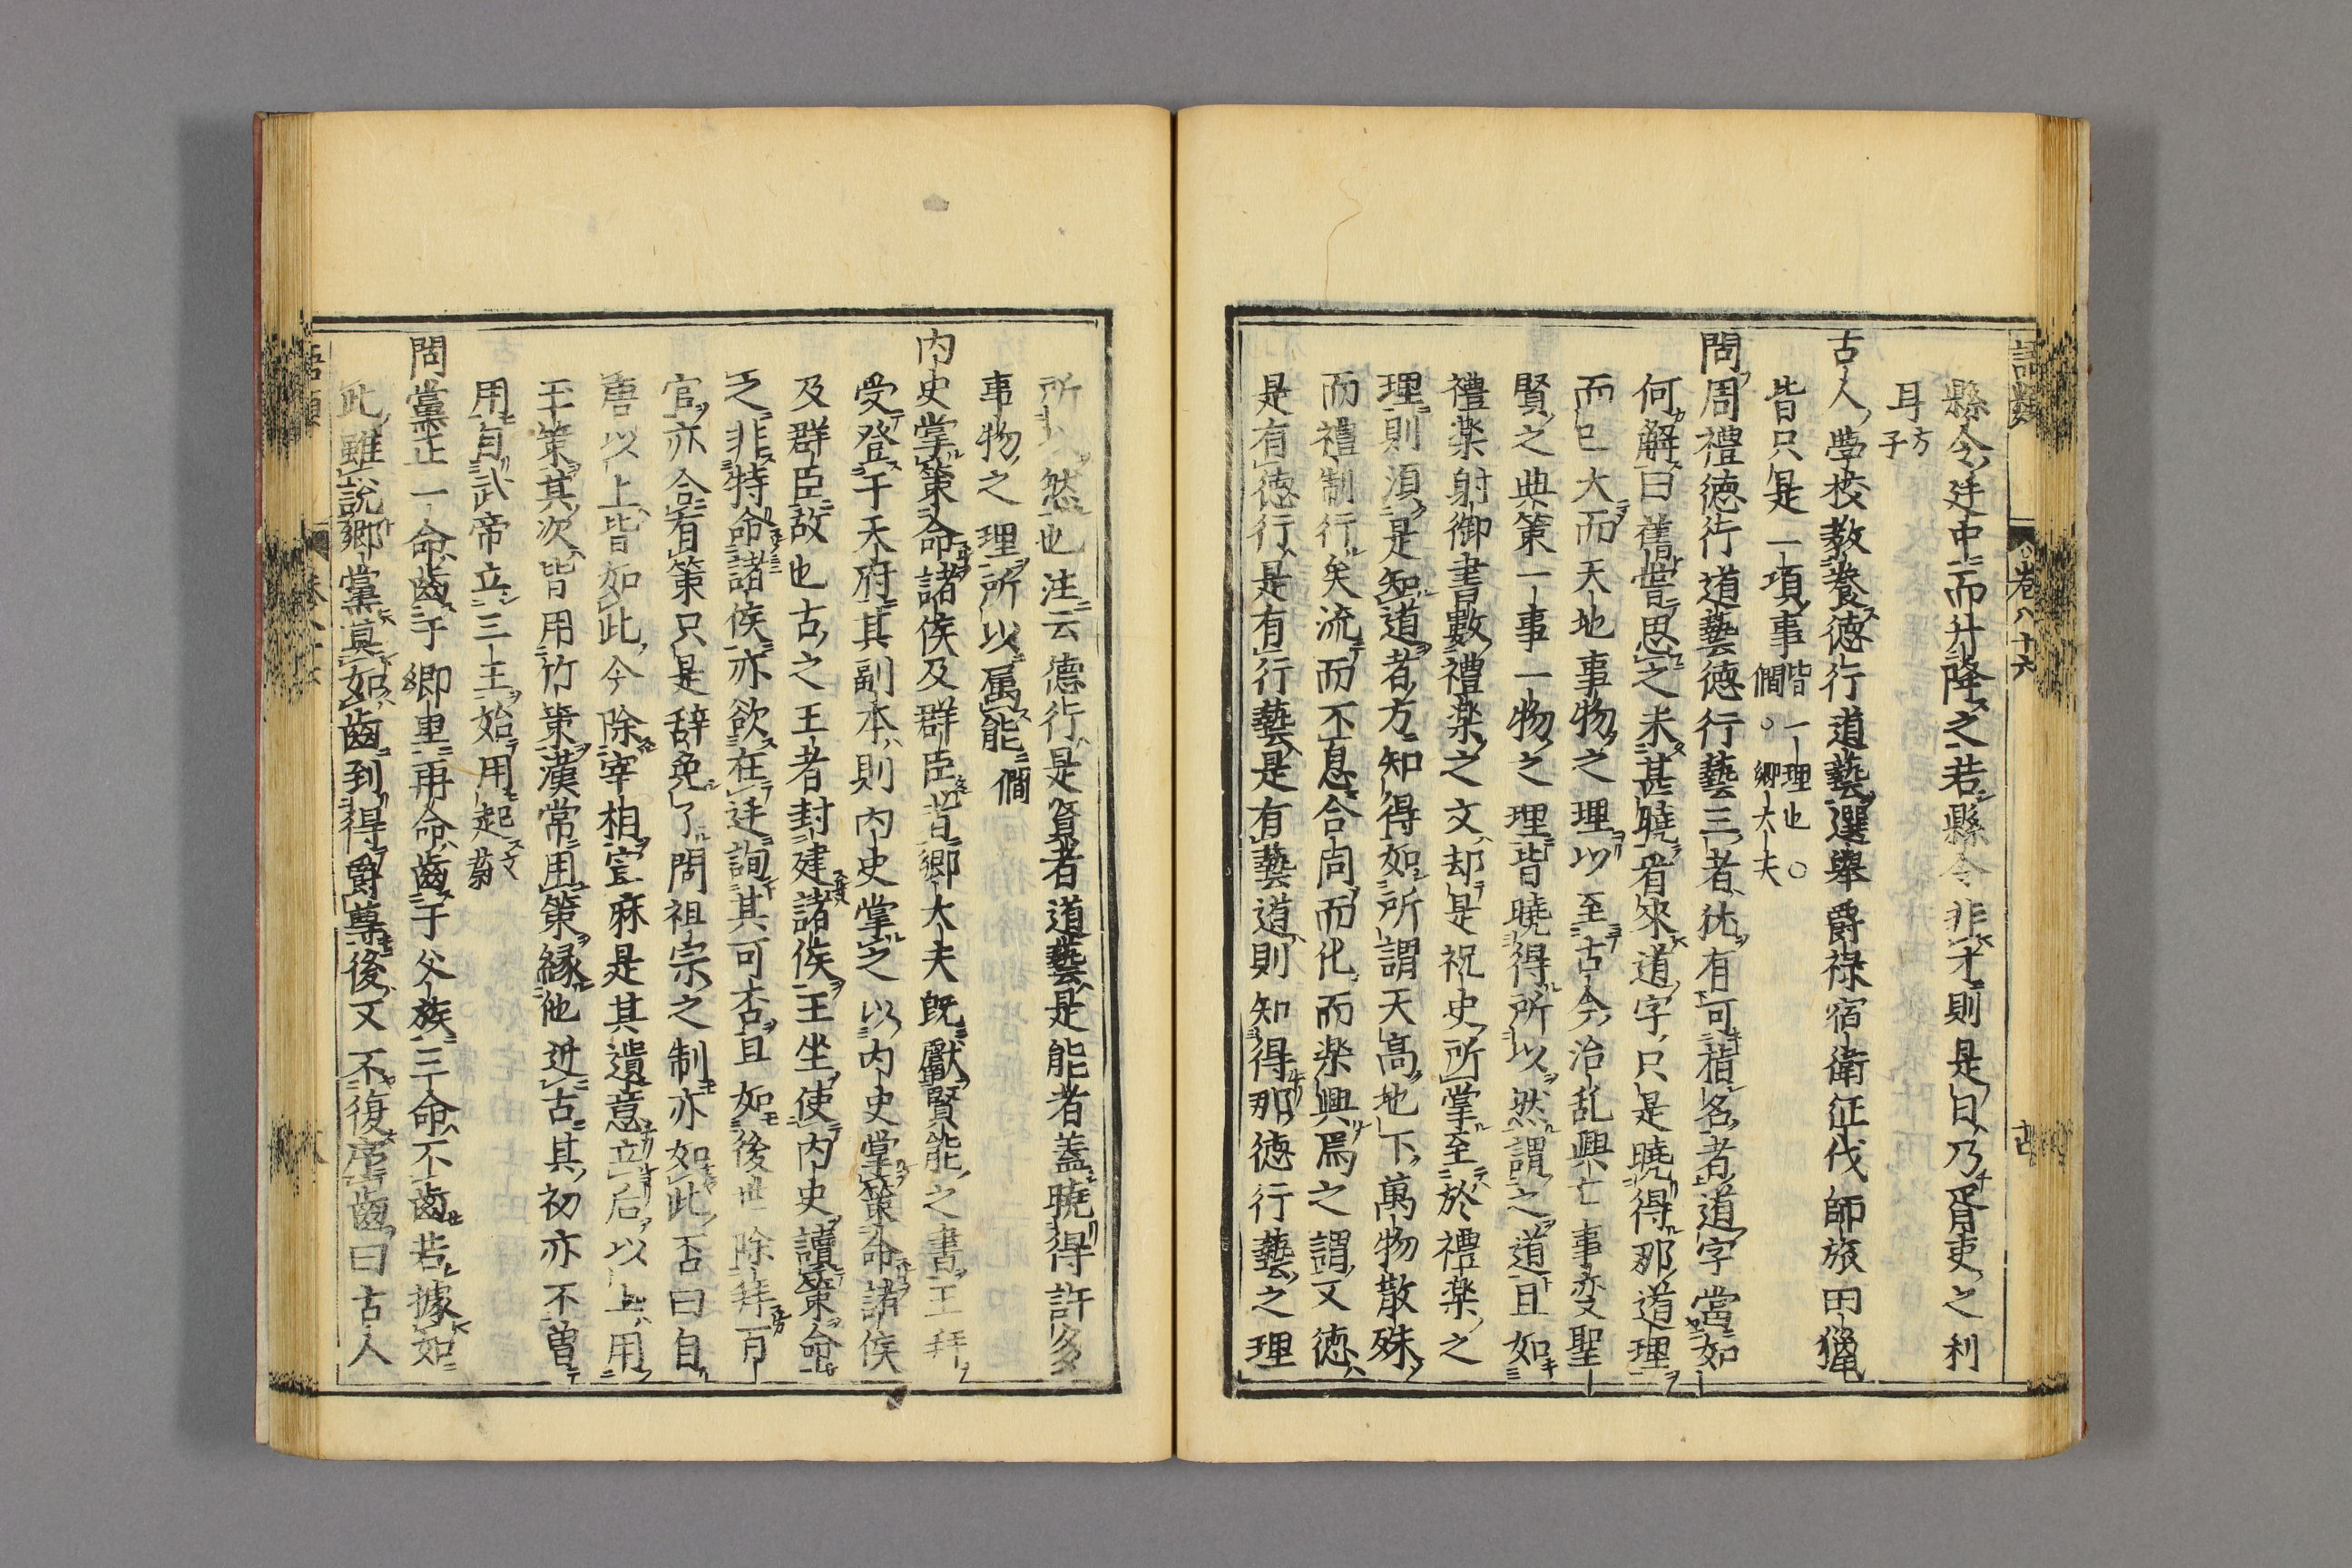 語類 卷八十六 十四
縣令廷中而升降之若縣令非才則是日乃胥吏之利
耳方子
古人學校教養德行道藝選舉爵祿宿衛征伐師旅田獵
皆只是一項事皆一理也○卿大夫 僩○
問周禮德行道藝德行藝三者猶有可指名者道字當如
何解曰舊嘗思之未甚曉看來道字只是曉得那道理
而已大而天地事物之理以至古今治乱興亡事变聖
賢之典策一事一物之理皆曉得所以然謂之道且如
禮楽射御書數禮楽之文却是祝史所掌至於禮楽之
理則須是知道者方知得如所謂天高地下萬物散殊
而禮制行矣流而不息合同而化而楽興焉之謂又德
是有德行是有行藝是有藝道則知得那德行藝之理
所以然也注云德行是賢者道藝是能者蓋曉得許多
事物之理所以属能僩
内史掌策命諸侯及群臣者卿大夫既獻賢能之書王拜
受登于天府其副本則内史掌之以内史掌策命諸侯
及群臣故也古之王者封建諸侯王坐使内史讀策命
之非特命諸侯亦欲在廷詢其可否且如後世除拜百
官亦合有策只是辞免了問祖宗之制亦如此否曰自
唐以上皆如此今除宰相宣麻是其遺意立后以上用
玉策其次皆用竹策漢常用策緣他近古其初亦不曽
用自武帝立三王始用起文蔚
問黨正一命齒于郷里再命齒于父族三命不齒若據如
此雖說郷黨莫如齒到得爵尊後又不復序齒曰古人
語類 卷八十六